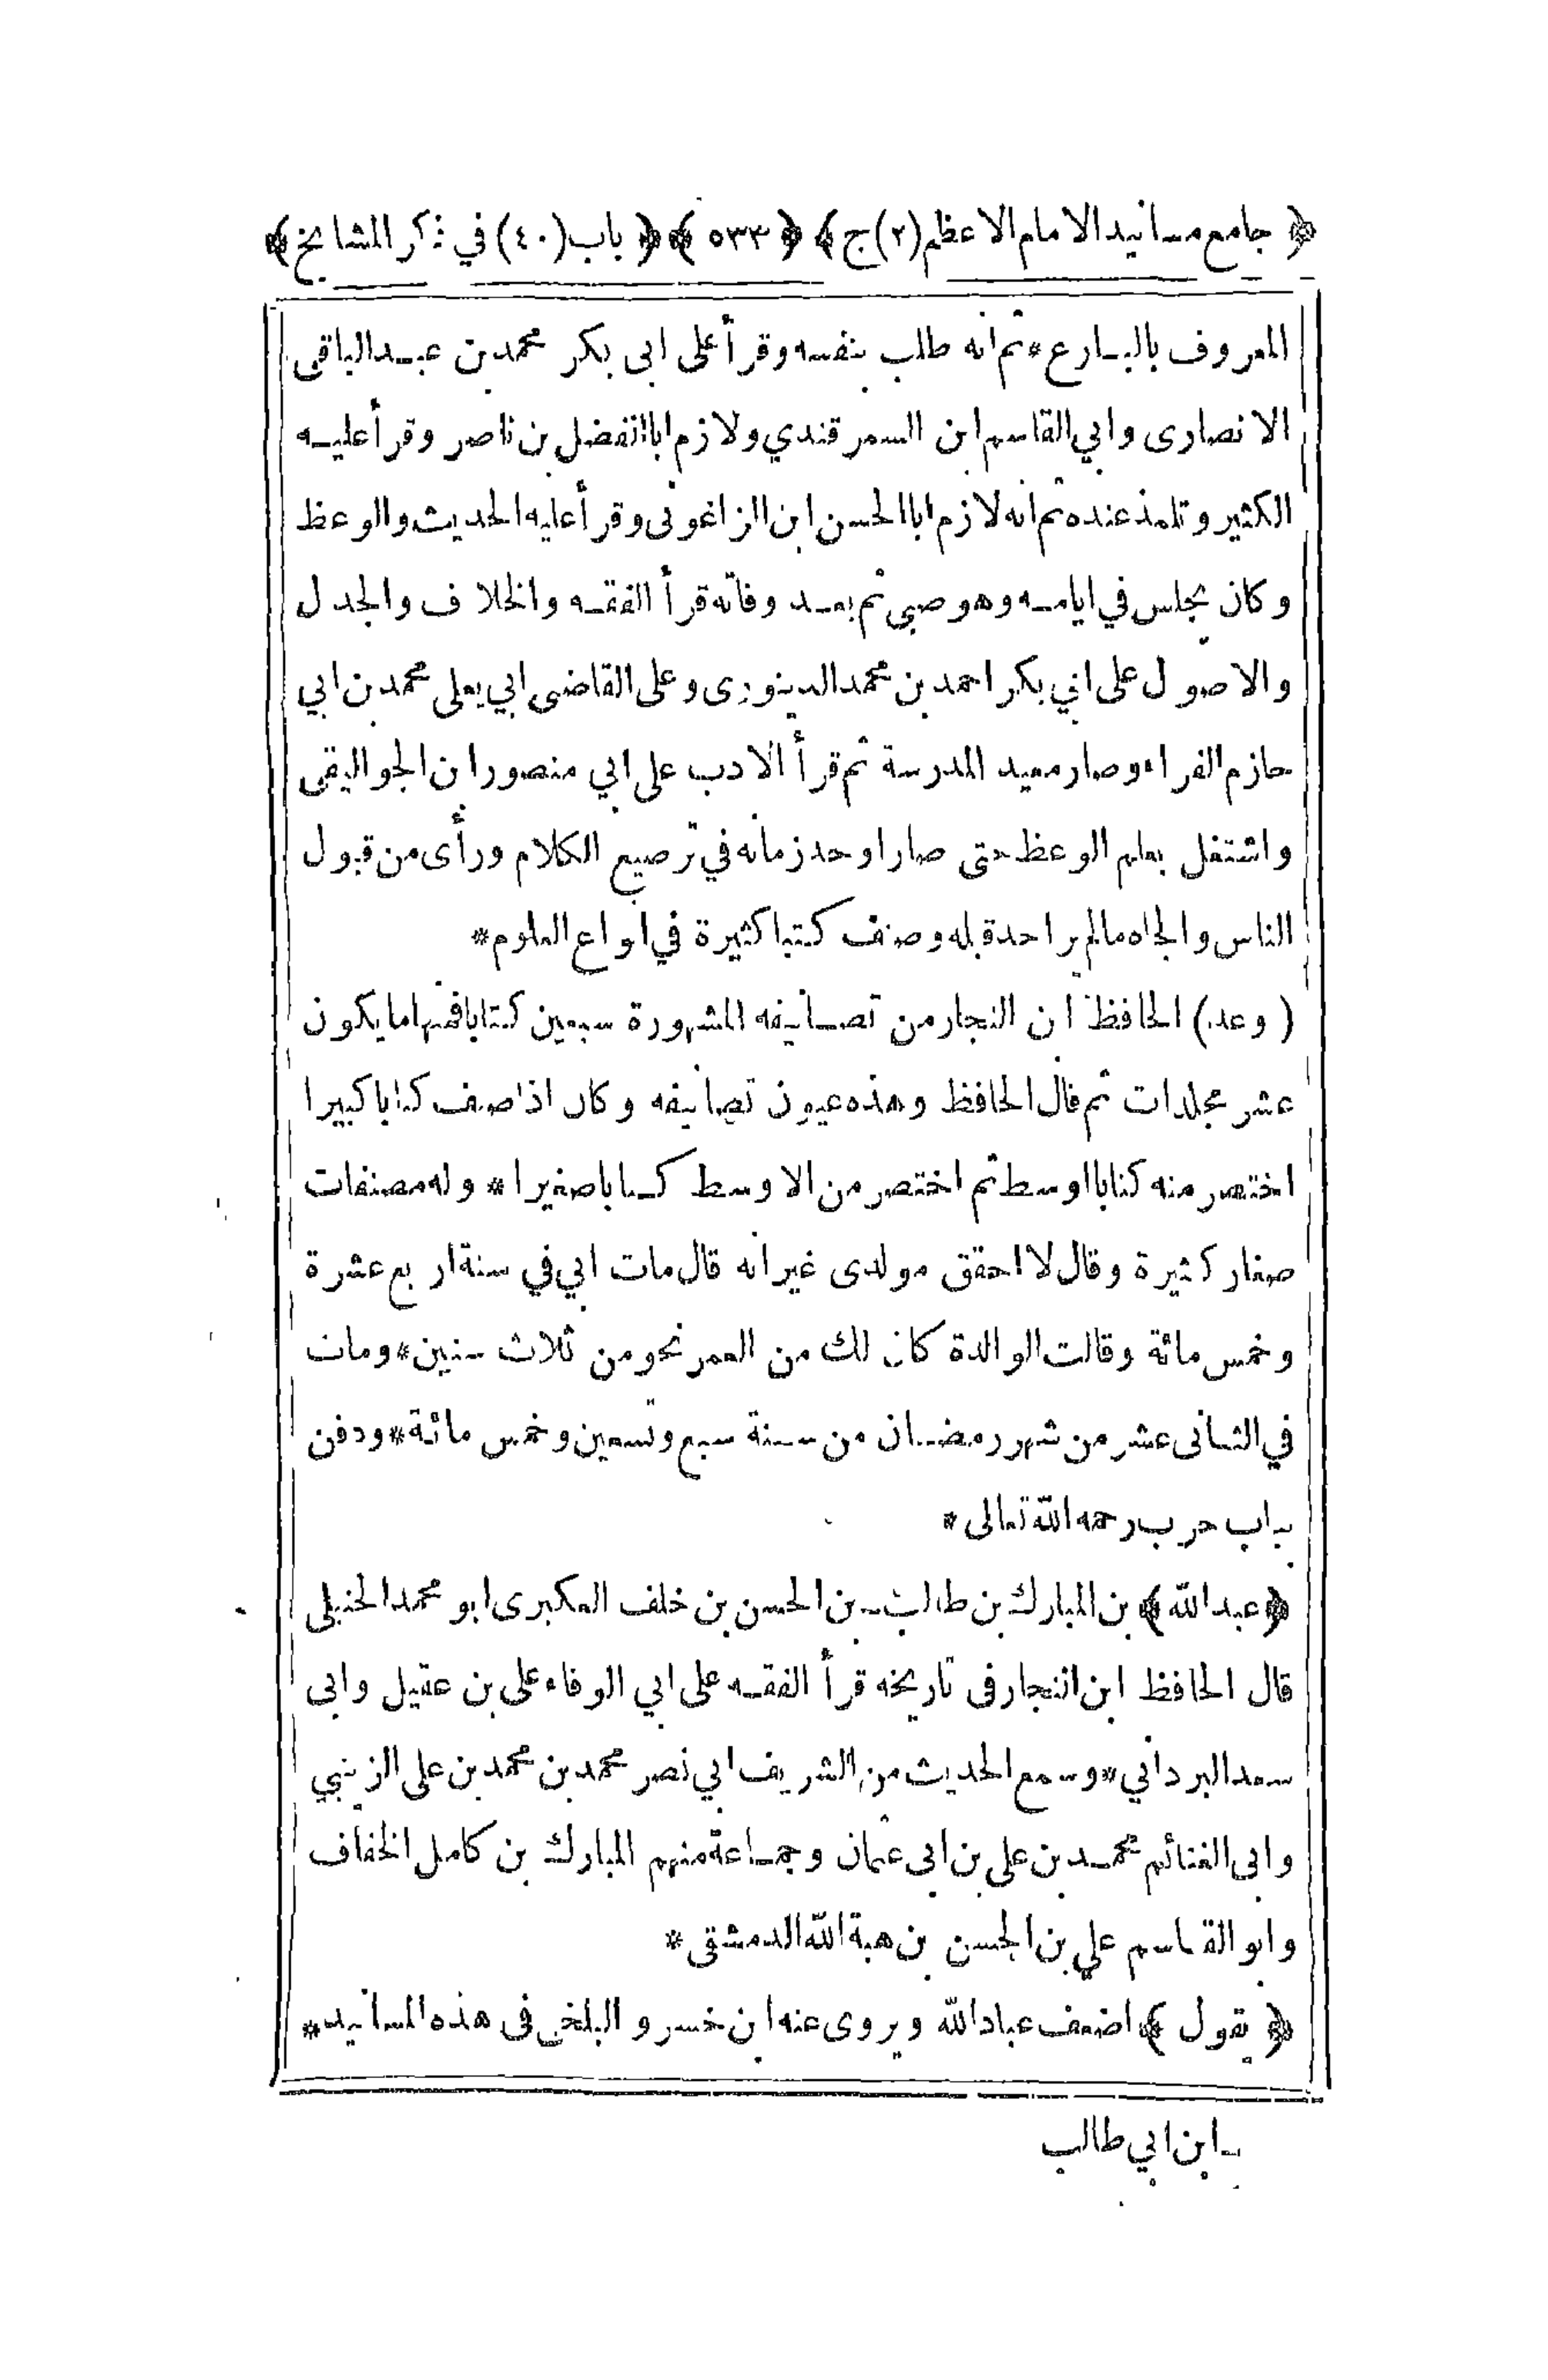 ﴿ جامع مسانيد الامام الاعظم (٢) ج ﴾ ﴿ ٥٣٣ ﴾ ﴿ باب (٤٠) في ذكر المشايخ ﴾
المعروف بالبارع * ثم انه طلب بنفسه وقرأ على ابى بكر محمد بن عبد الباقى
الانصارى وابي القاسم ابن السمرقندي ولازم ابا الفضل بن ناصر وقرأ عليه
الكثير وتلمذ عنده ثم انه لازم ابا الحسن ابن الزاغونى وقرأ عليه الحديث والوعظ
وكان يجلس في ايامه وهو صبي ثم بعد وفاته قرأ الفقه والخلاف والجدل
والاصول على ابي بكر احمد بن محمد الدينورى وعلى القاضى ابي يعلى محمد بن ابي
حازم الفراء وصار معيد المدرسة ثم قرأ الادب على ابي منصور ابن الجواليقى
واشتغل بعلم الوعظ حتى صار اوحد زمانه في ترصيع الكلام ورأى من قبول
الناس والجاه مالم ير احد قبله وصنف كتبا كثيرة في انواع العلوم *
( وعد ) الحافظ ابن النجار من تصانيفه المشهورة سبعين كتابا فمنها ما يكون
عشر مجلدات ثم قال الحافظ وهذه عيون تصانيفه وكان اذا صنف كتابا كبيرا
اختصر منه كتابا اوسط ثم اختصر من الاوسط كتابا صغيرا * وله مصنفات
صغار كثيرة وقال لا احقق مولدى غير انه قال مات ابي في سنة اربع عشرة
وخمس مائة وقالت الوالدة كان لك من العمر نحو من ثلاث سنين * ومات
في الثانى عشر من شهر رمضان من سنة سبع وتسعين وخمس مائة * ودفن
بباب حرب رحمه الله تعالى *
﴿ عبد الله ﴾ بن المبارك بن طالب ـ بن الحسن بن خلف العكبرى ابو محمد الحنبلي
قال الحافظ ابن النجار فى تاريخه قرأ الفقه على ابي الوفاء على بن عقيل وابى
سعد البرداني * وسمع الحديث من الشريف ابي نصر محمد بن محمد بن على الزينبي
وابى الغنائم محمد بن على بن ابى عثمان وجماعة منهم المبارك بن كامل الخفاف
وابو القاسم علي بن الحسن بن هبة الله الدمشقى *
﴿ يقول ﴾ اضعف عباد الله ويروى عنه ابن خسرو البلخى فى هذه المسانيد *
ـ ابن ابي طالب